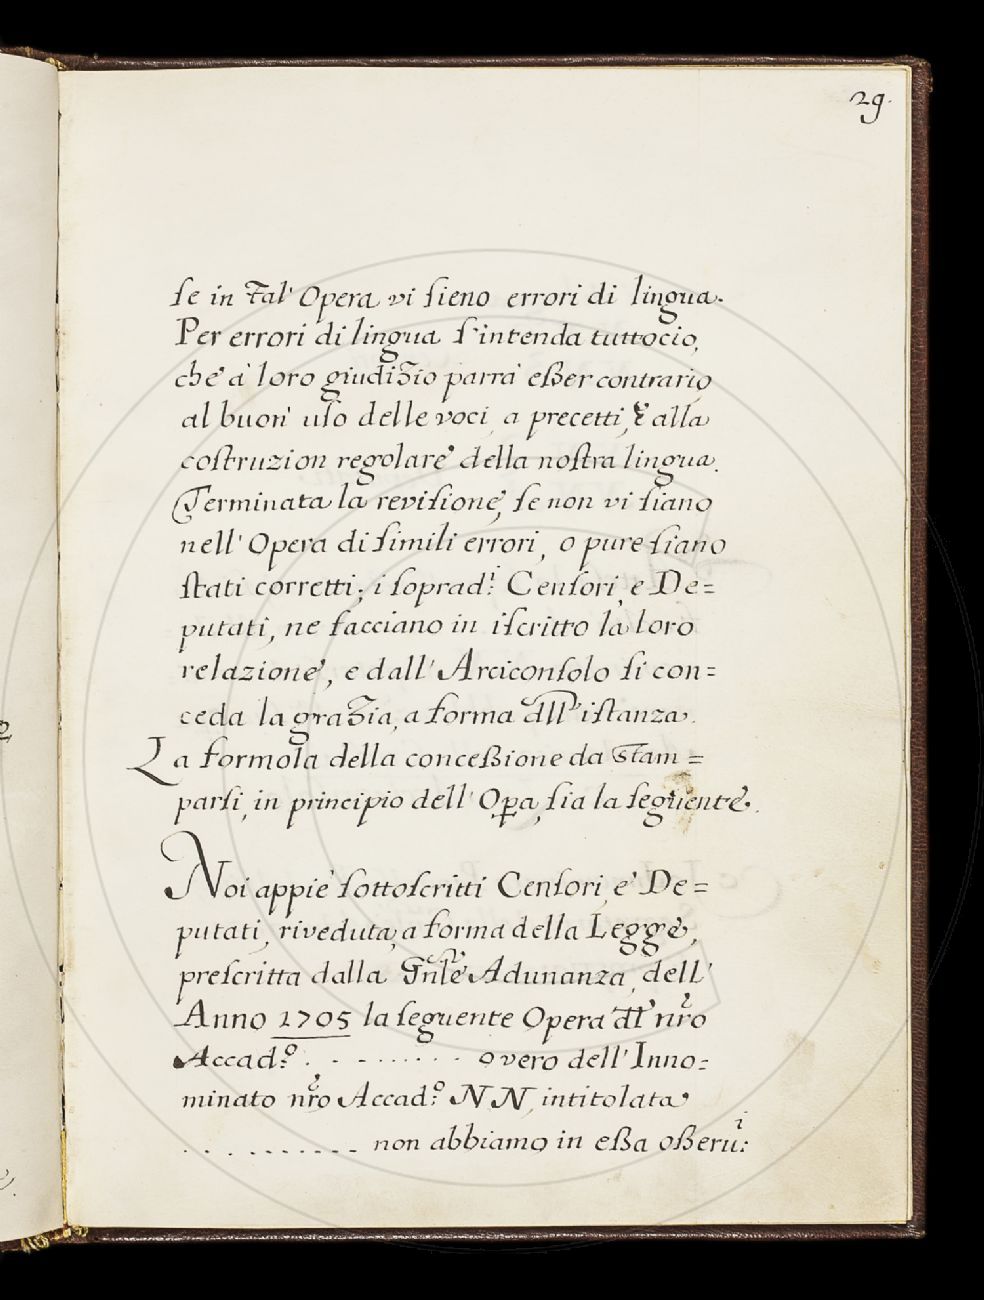 29.
se in tal' Opera vi sieno errori di lingua.
Per errori di lingua s'intenda tuttociò,
che à loro giudizio parrà eßer contrario
al buon' uso delle voci, a precetti, e alla
costruzion regolare della nostra lingua.
Terminata la revisione, se non vi siano
nell' Opera di simili errori, o pure siano
stati corretti; i soprad.ⁱ Censori, e De=
putati, ne facciano in iscritto la loro
relazione, e dall' Arciconsolo si con=
ceda la grazia, a forma dll' istanza.
La formola della conceßione da stam=
parsi, in principio dell' Opa, sia la seguente.
Noi appiè sottoscritti Censori, e De=
putati, riveduta, a forma della Legge,
prescritta dalla Gnle Adunanza, dell'
Anno 1705 la seguente Opera dl nro
Accad.º . - - . . . . . . - overo dell' Inno=
minato nro Accad.º NN, intitolata
. . . . . . . . - - non abbiamo in eßa oßeru:ⁱ